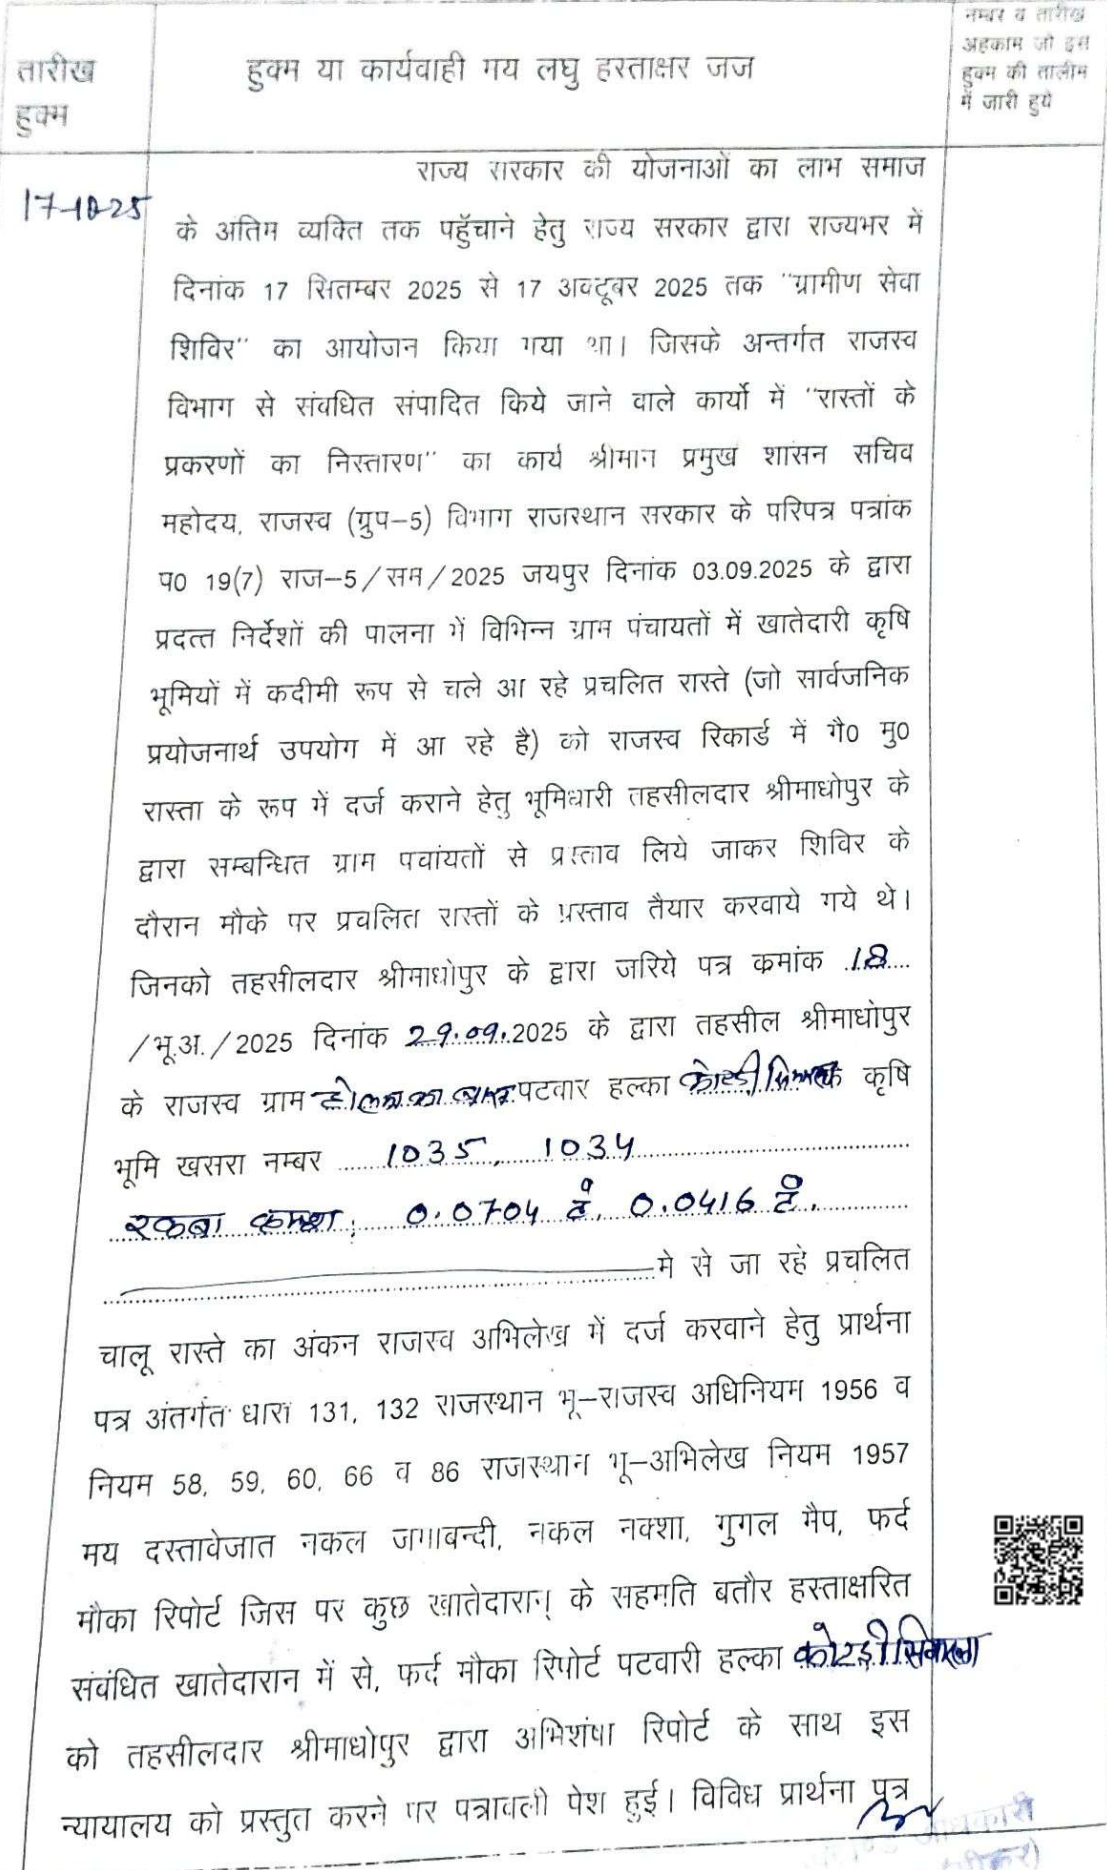 तारीख
हुक्म
हुक्म या कार्यवाही मय लघु हस्ताक्षर जज
नम्बर व तारीख
अहकाम जो इस
हुक्म की तालीम
में जारी हुये
17-10-25
राज्य सरकार की योजनाओं का लाभ समाज
के अंतिम व्यक्ति तक पहुँचाने हेतु राज्य सरकार द्वारा राज्यभर में
दिनांक 17 सितम्बर 2025 से 17 अक्टूबर 2025 तक "ग्रामीण सेवा
शिविर" का आयोजन किया गया था। जिसके अन्तर्गत राजस्व
विभाग से संबधित संपादित किये जाने वाले कार्यो में "रास्तों के
प्रकरणों का निस्तारण" का कार्य श्रीमान प्रमुख शासन सचिव
महोदय, राजस्व (ग्रुप–5) विभाग राजस्थान सरकार के परिपत्र पत्रांक
प0 19(7) राज–5/सम/2025 जयपुर दिनांक 03.09.2025 के द्वारा
प्रदत्त निर्देशों की पालना में विभिन्न ग्राम पंचायतों में खातेदारी कृषि
भूमियों में कदीमी रूप से चले आ रहे प्रचलित रास्ते (जो सार्वजनिक
प्रयोजनार्थ उपयोग में आ रहे है) को राजस्व रिकार्ड में गै0 मु0
रास्ता के रूप में दर्ज कराने हेतु भूमिधारी तहसीलदार श्रीमाधोपुर के
द्वारा सम्बन्धित ग्राम पचांयतों से प्रस्ताव लिये जाकर शिविर के
दौरान मौके पर प्रचलित रास्तों के प्रस्ताव तैयार करवाये गये थे।
जिनको तहसीलदार श्रीमाधोपुर के द्वारा जरिये पत्र कमांक 18
/भू.अ./2025 दिनांक 29.09.2025 के द्वारा तहसील श्रीमाधोपुर
के राजस्व ग्राम पटवार हल्का कोटडी कृषि
भूमि खसरा नम्बर 1035, 1034
रकबा क्रमश: 0.0704 है, 0.0416 है.
मे से जा रहे प्रचलित
चालू रास्ते का अंकन राजस्व अभिलेख में दर्ज करवाने हेतु प्रार्थना
पत्र अंतर्गत धारा 131, 132 राजस्थान भू–राजस्व अधिनियम 1956 व
नियम 58, 59, 60, 66 व 86 राजस्थान भू–अभिलेख नियम 1957
मय दस्तावेजात नकल जमाबन्दी, नकल नक्शा, गुगल मैप, फर्द
मौका रिपोर्ट जिस पर कुछ खातेदारान् के सहमति बतौर हस्ताक्षरित
संबंधित खातेदारान में से, फर्द मौका रिपोर्ट पटवारी हल्का कोटडी
को तहसीलदार श्रीमाधोपुर द्वारा अभिशंषा रिपोर्ट के साथ इस
न्यायालय को प्रस्तुत करने पर पत्रावली पेश हुई। विविध प्रार्थना पत्र